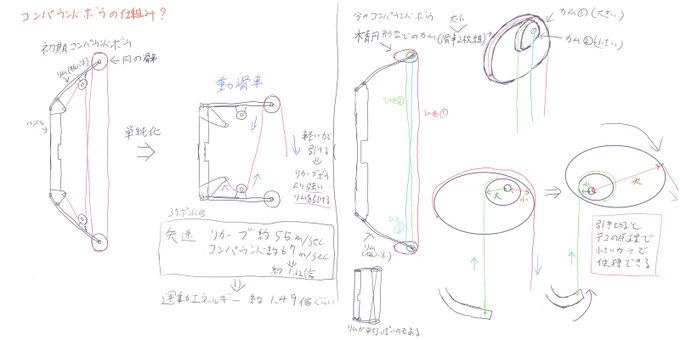 コンパウンドボウの仕組み？
初期コンパウンドボウ
円の滑車
リム(板バネ)
ハンドル
単純化
動滑車
軽い力で
引ける
リカーブボウ
より強い
リムを引ける
矢速 リカーブ 約55m/sec
コンパウンド 約67m/sec
約1.22倍
運動エネルギー 約1.49倍ぐらい
今のコンパウンドボウ
大小
楕円形などのカム(滑車2枚組)
カム①(大きい)
カム②(小さい)
ひも②
ひも①
リム(板バネ)
リムが平行っぽいのもある
大
小
小
大
引き切ると
テコの原理で
小さい力で
保持できる